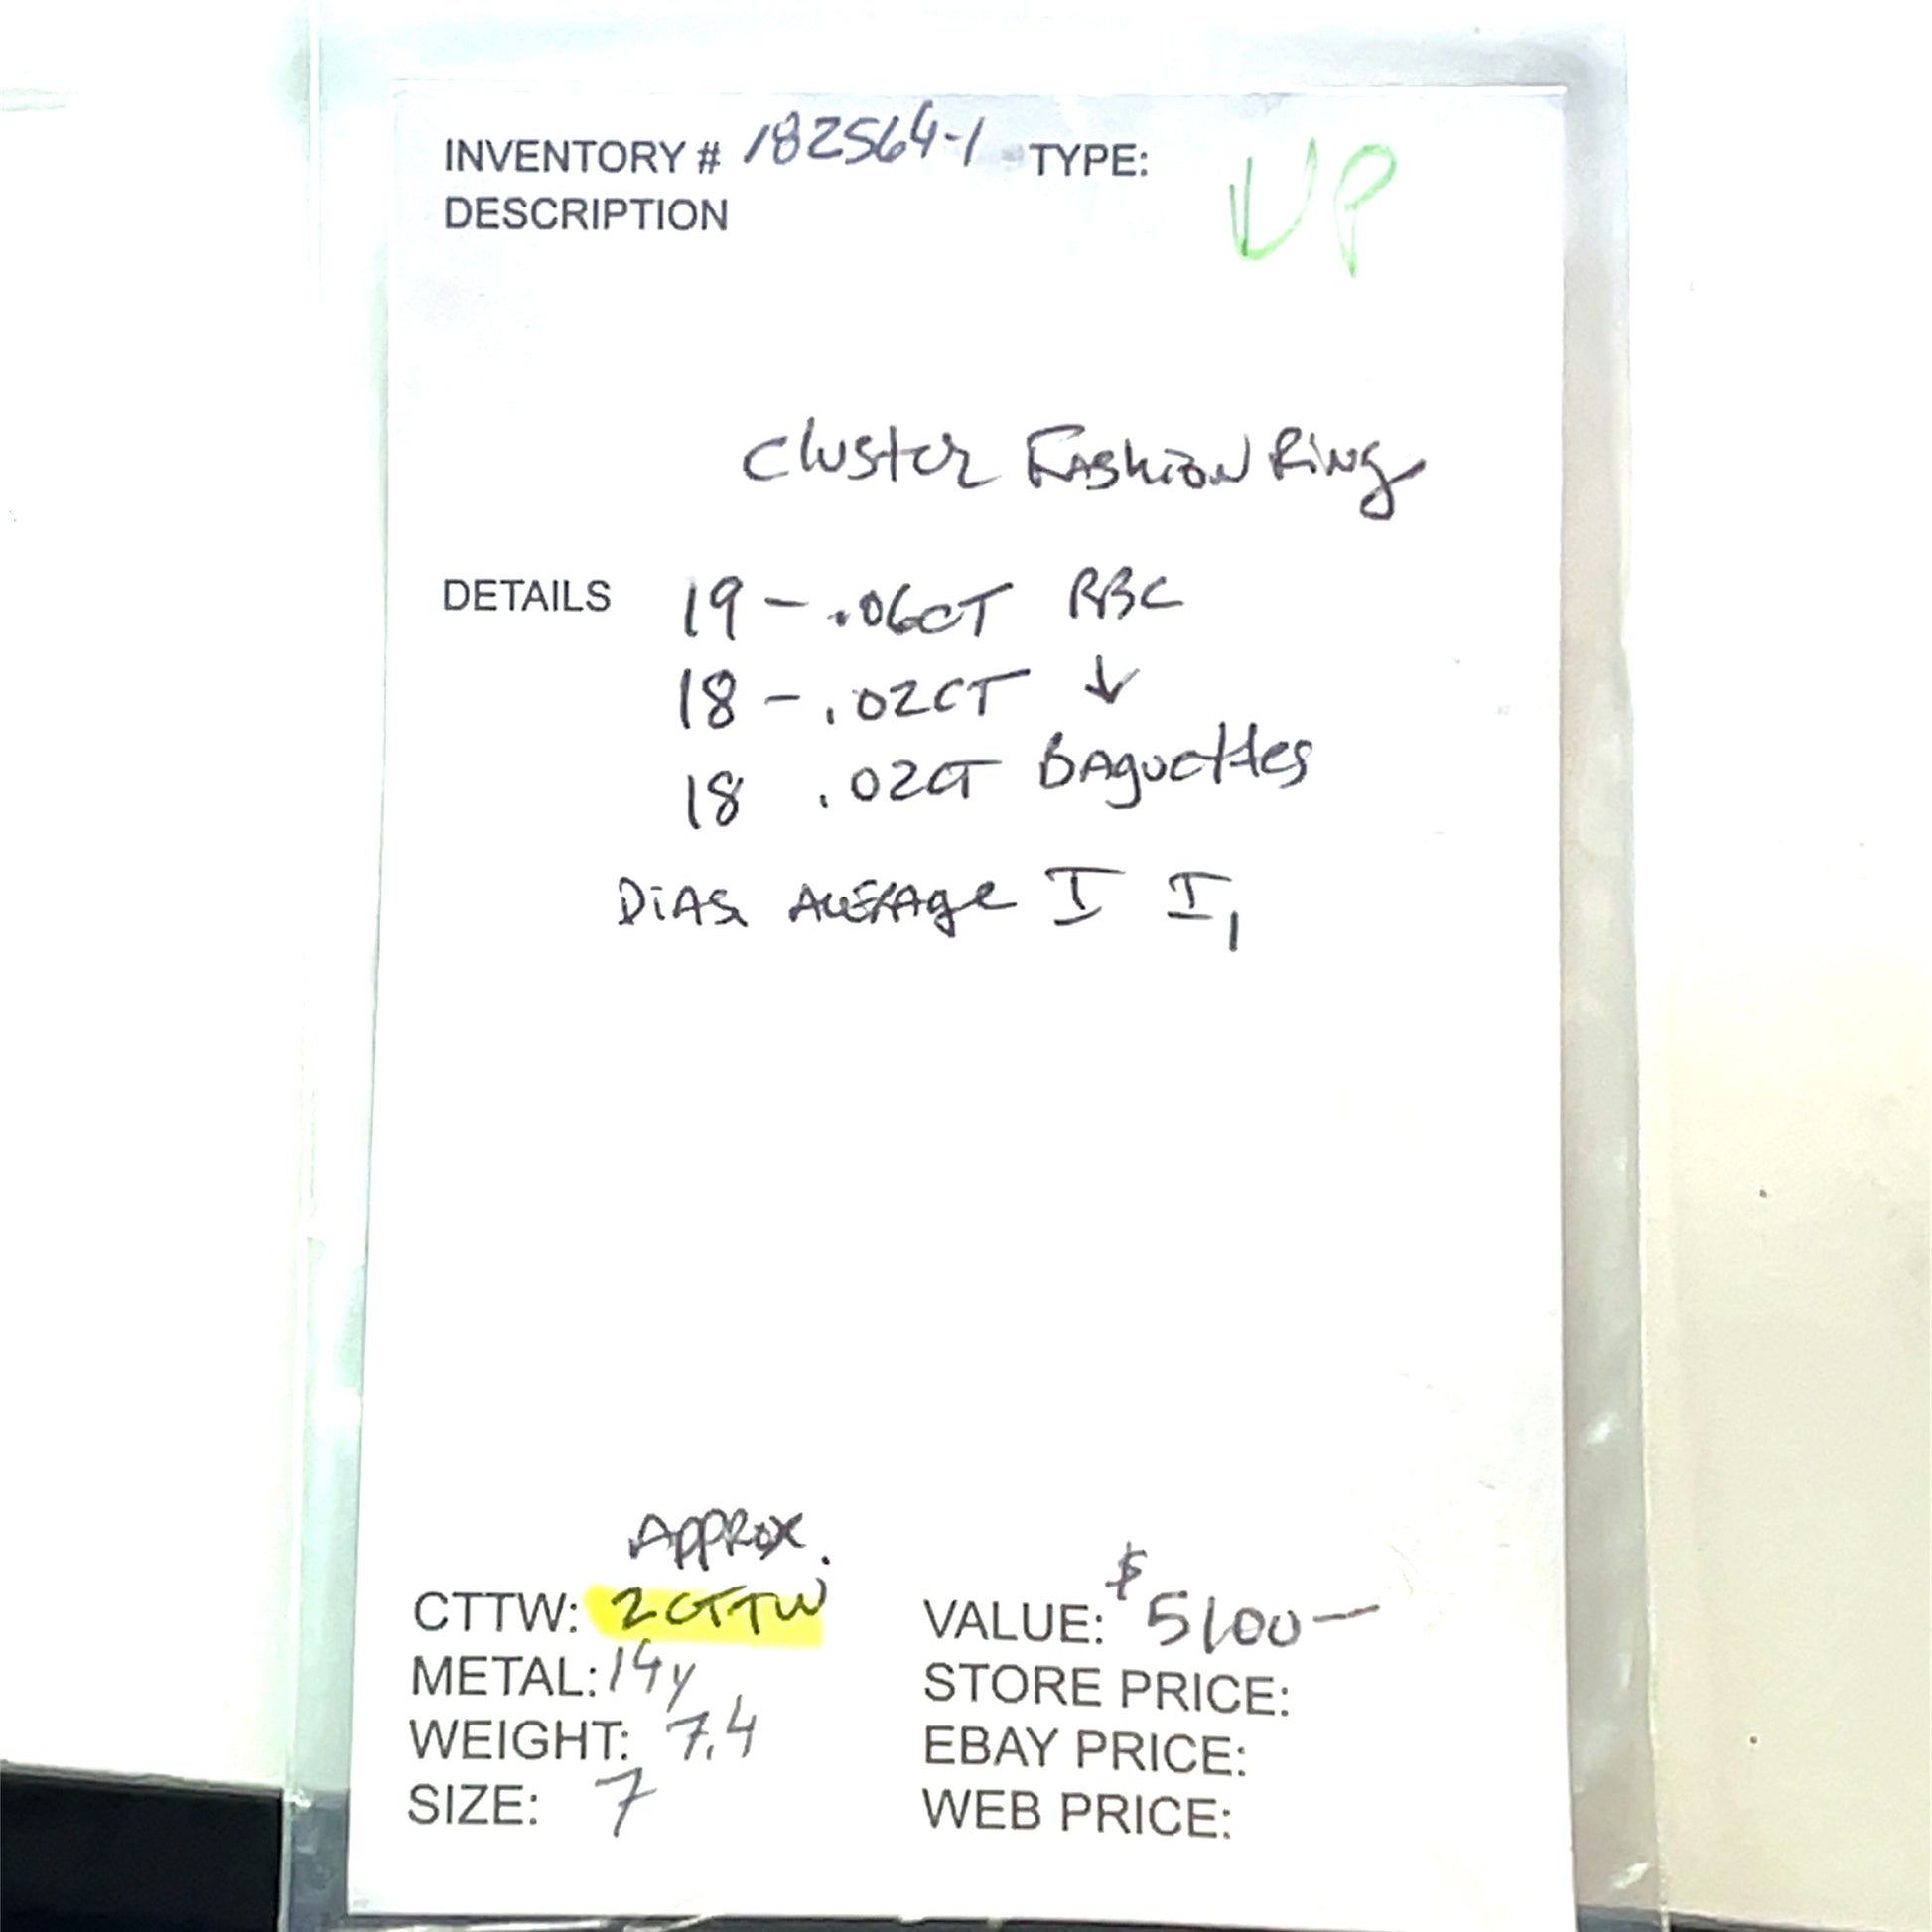 INVENTORY # 182564-1 TYPE: UP
DESCRIPTION
Cluster Fashion Ring
DETAILS 19 - .06CT RBC
18 - .02CT ↓
18 .02CT Baguettes
Dias Average I I1
Approx.
CTTW: 2 CTTW
METAL: 14y
WEIGHT: 7.4
SIZE: 7
VALUE: $5100—
STORE PRICE:
EBAY PRICE:
WEB PRICE: